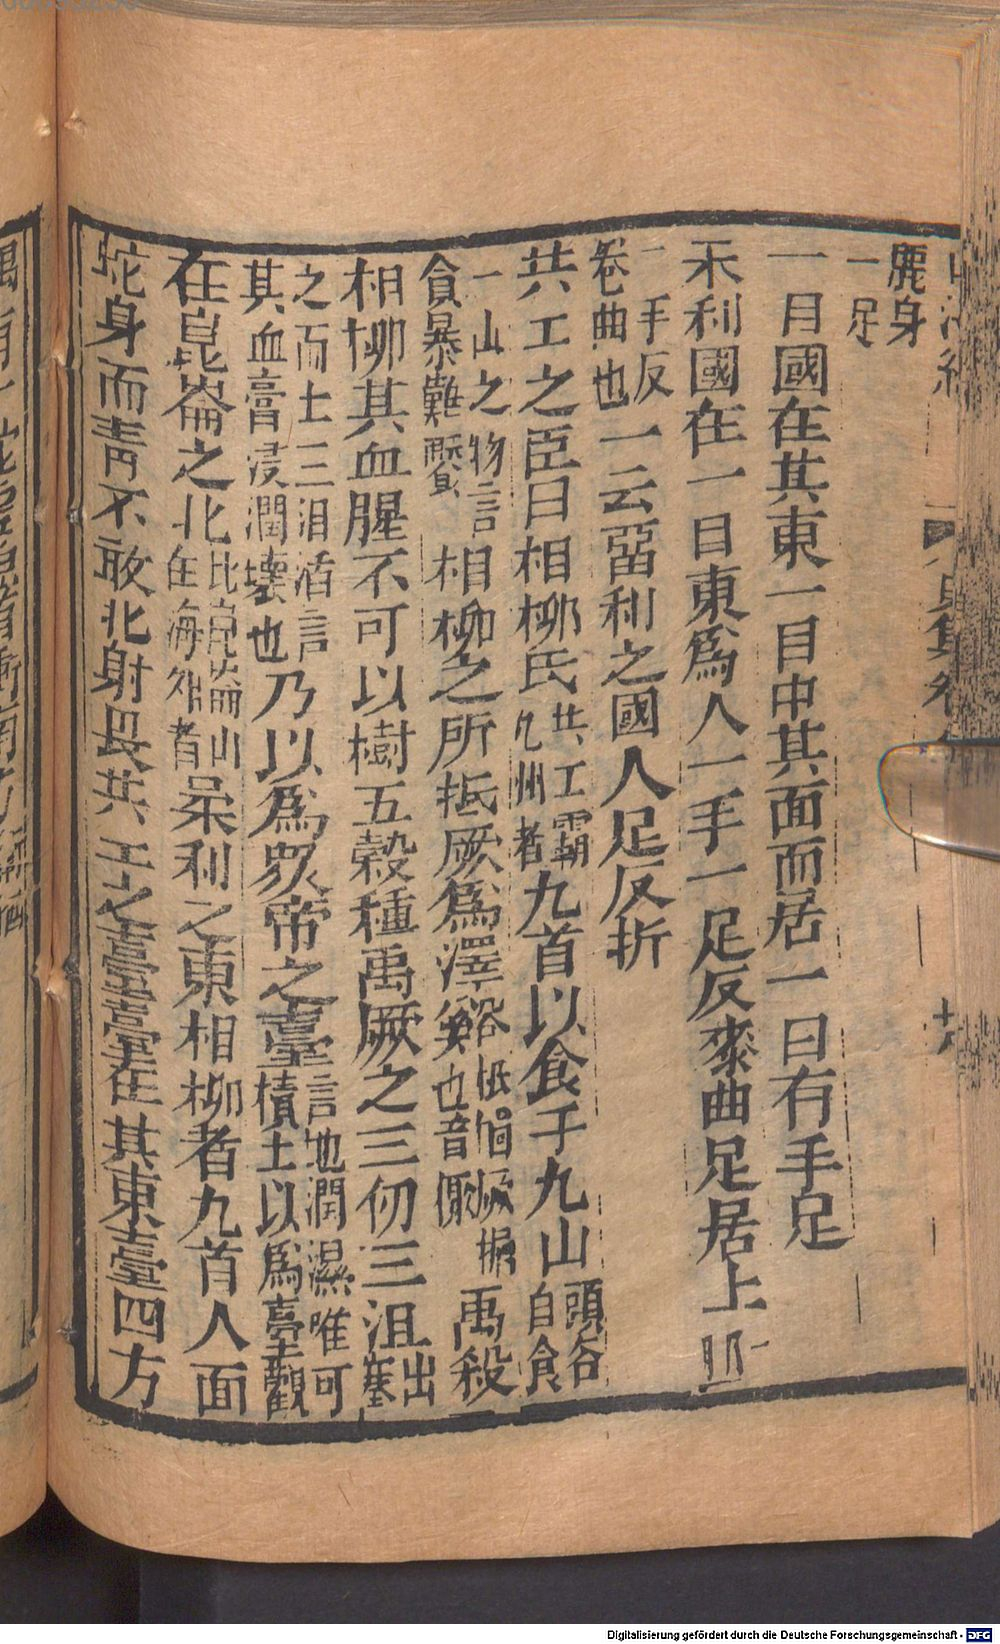 鹿身
一足
一目國在其東一目中其面而居一曰有手足
禾利國在一目東爲人一手一足反䣛曲足居上
一手反卷曲也一云畱利之國人足反折
共工之臣曰相柳氏共工霸九州者九首以食于九山頭各自食
一山之物言貪暴難饜相柳之所抵厥爲澤谿抵觸厥掘也音㒧禹殺
相柳其血腥不可以樹五穀種禹厥之三仞三沮出塞
之而土三沮滔言其血膏浸潤壞也乃以爲衆帝之臺言地潤濕唯可積土以爲臺觀
在崑崙之北比崑崙山在海外者柔利之東相柳者九首人面
蛇身而青不敢北射畏共工之臺臺在其東臺四方
Digitalisierung gefördert durch die Deutsche Forschungsgemeinschaft - DFG